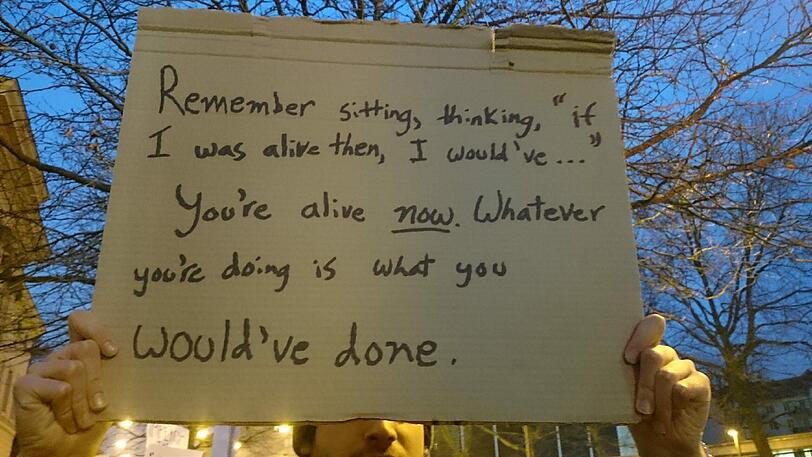 Remember sitting, thinking, "if
I was alive then, I would've..."
You're alive now. Whatever
you're doing is what you
would've done.